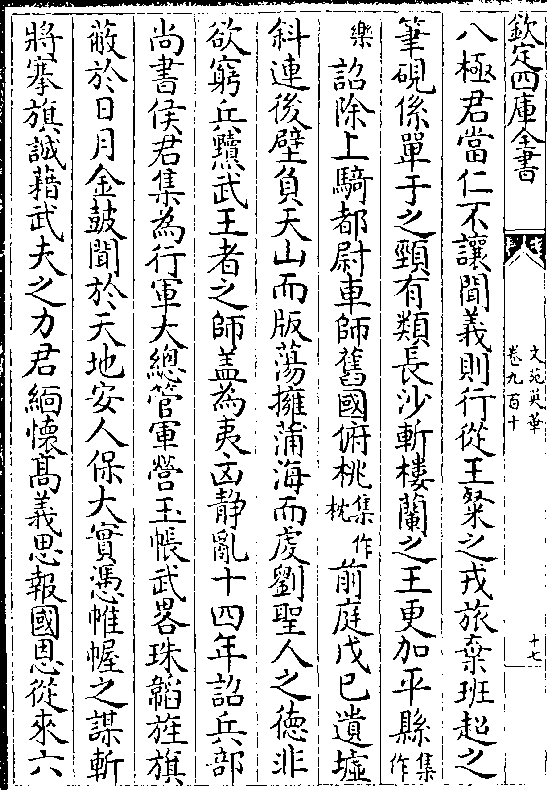 欽定四庫全書
文苑英華
卷九百十
十七
八極君當仁不讓聞義則行從王粲之戎旅棄班超之
筆硯係單于之頸有類長沙斬樓蘭之王更加平縣集作
樂詔除上騎都尉車師舊國俯桃集作枕前庭戊已遺墟
斜連後壁負天山而版蕩擁蒲海而虔劉聖人之德非
欲窮兵黷武王者之師盖為夷㐫静亂十四年詔兵部
尚書侯君集為行軍大緫管軍營玉帳武畧珠韜旌旗
蔽於日月金鼓聞於天地安人保大實憑帷幄之謀斬
將搴旗誠藉武夫之力君緬懷髙義思報國恩從來六